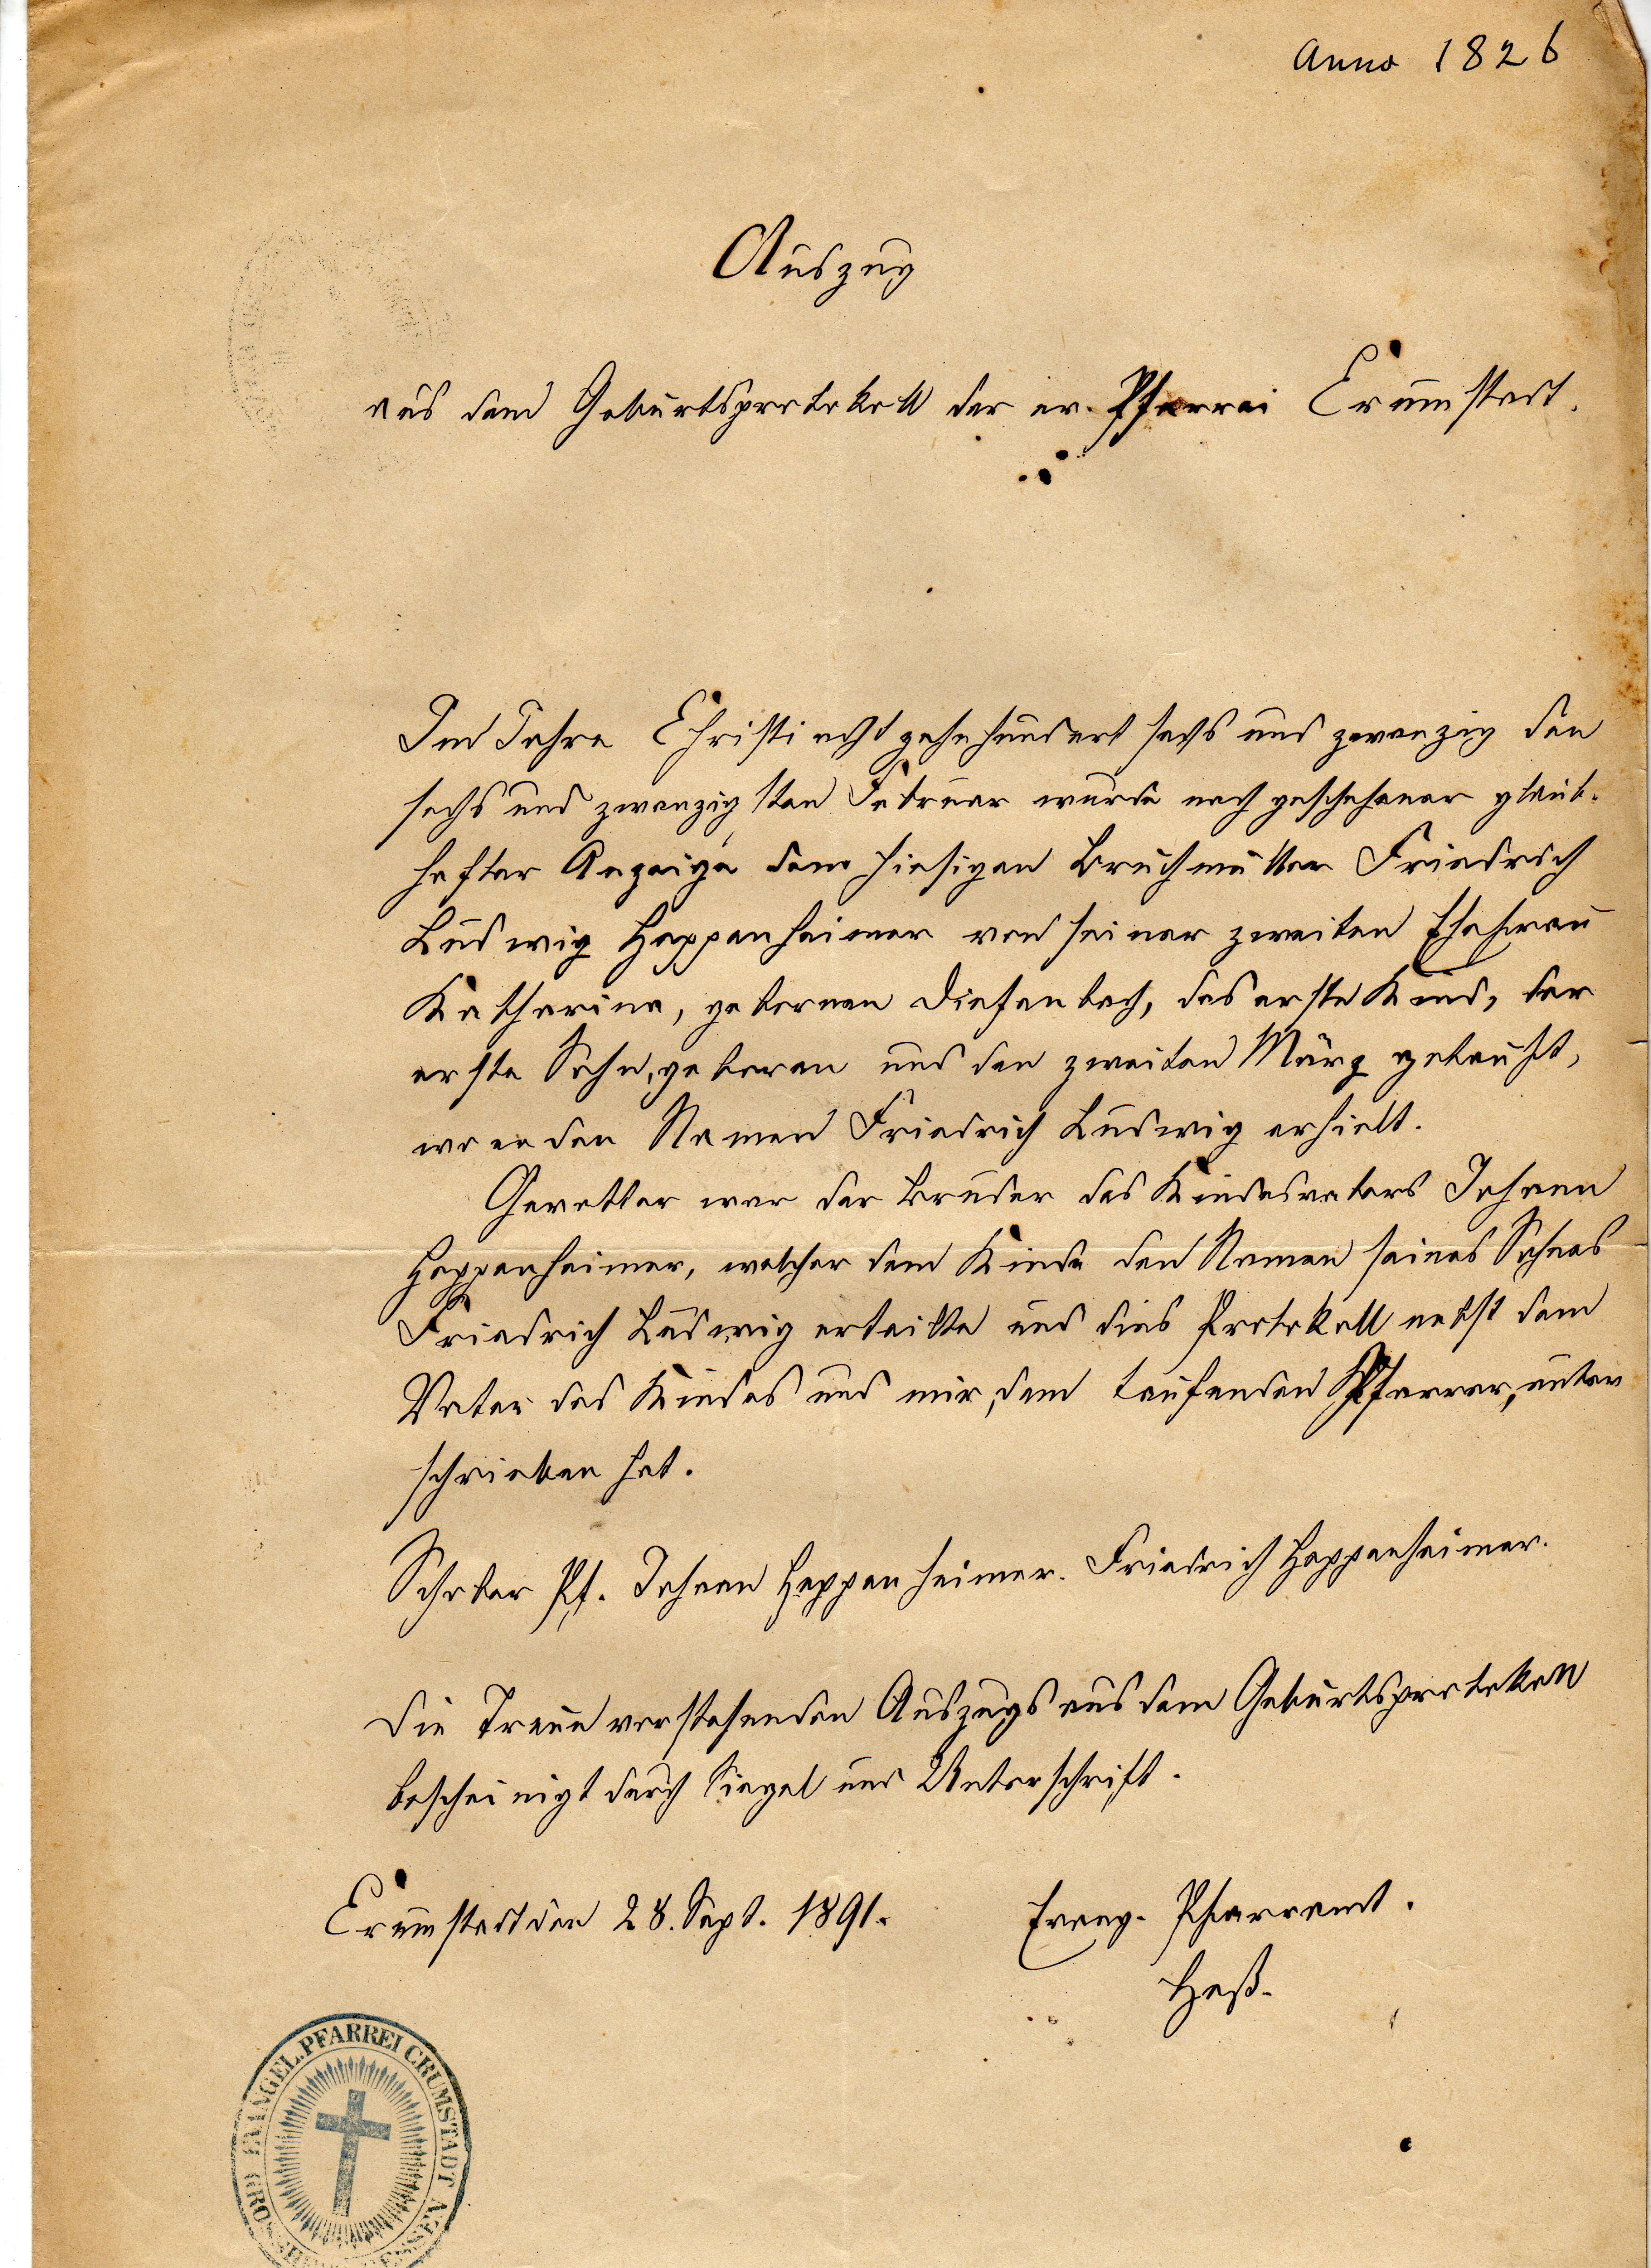 Anno 1826
Auszug
aus dem Geburtsprotokoll der ev. Pfarrei Crumstadt.
Im Jahre Christi achtzehnhundert sechs und zwanzig den
sechs und zwanzigsten Februar wurde nach geschehener glaub-
hafter Anzeige dem hiesigen Bruchmüller Friedrich
Ludwig Heppenheimer von seiner zweiten Ehefrau
Katharina, geborenen Diefenbach, das erste Kind, der
erste Sohn, geboren und den zweiten März getauft,
wo er den Namen Friedrich Ludwig erhielt.
Gevatter war der Bruder des Kindesvaters Johann
Heppenheimer, welcher dem Kinde den Namen seines Sohnes
Friedrich Ludwig erteilte und dies Protokoll nebst dem
Vater des Kindes und mir, dem taufenden Pfarrer, unter
schrieben hat.
Pf. Johann Heppenheimer. Friedrich Heppenheimer.
Die Treue vorstehenden Auszugs aus dem Geburtsprotokoll
bescheinigt durch Siegel und Unterschrift.
Crumstadt den 28. Sept. 1891. Evang. Pfarramt.
Heß.
EVANGEL. PFARREI CRUMSTADT